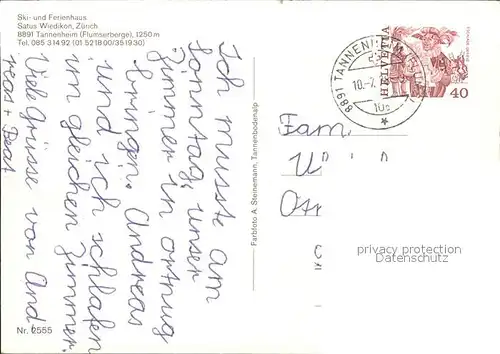 Ski- und Ferienhaus
Satus Wiedikon, Zürich
8891 Tannenheim (Flumserberge), 1250 m
Tel. 085 3 14 92 (01 52 18 00/35 19 30)
Ich musste am
Sonntag, unser
Zimmer in ortnug
bringen. Andreas
und ich schlafen
um gleichen Zimmer.
Viele Grüsse von And
reas + Beat
Nr. 2555
Farbfoto A. Steinemann, Tannenbodenalp
8891 TANNENHEIM
10.-2.
HELVETIA
40
Fam.
privacy protection
VEREMU.com